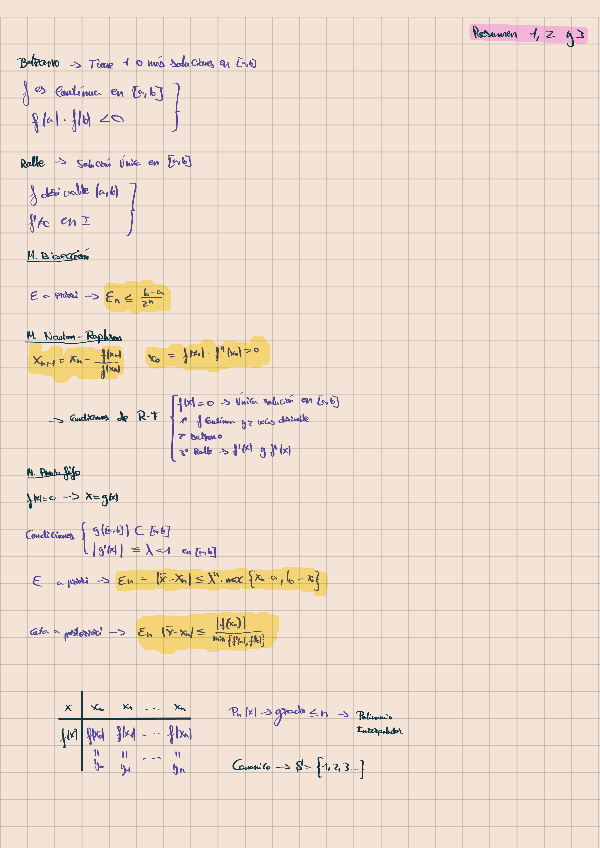 Resumen 1, 2 y 3
Bolzano -> Tiene 1 o más soluciones en [a,b]
f es continua en [a,b]
f(a) · f(b) < 0
Rolle -> Solución única en [a,b]
f derivable (a,b)
f'≠0 en I
M. Bisección
E a priori -> En ≤ (b-a)/2^n
M. Newton-Raphson
Xn+1 = Xn - f(xn)/f'(xn)   x0 = f(x0) · f''(x0) > 0
-> Condiciones de R-F
f(x)=0 -> Única solución en [a,b]
1º f continua y 2 veces derivable
2º Bolzano
3º Rolle -> f'(x) y f''(x)
M. Punto fijo
f(x)=0 -> x=g(x)
Condiciones { g([a,b]) ⊂ [a,b]
|g'(x)| ≤ λ < 1 en [a,b]
E a priori -> En = |x̄-xn| ≤ λ^n · max {x0-a, b-x0}
Cota a posteriori -> En |x̄-xn| ≤ |f(xn)| / min{f'(a), f'(b)}
x | x0 x1 ... xn
f(x) | f(x0) f(x1) ... f(xn)
" " ... "
y0 y1 yn
Pn(x) -> grado ≤ n -> Polinomio
Interpolador
Canonico -> = {1,2,3...}